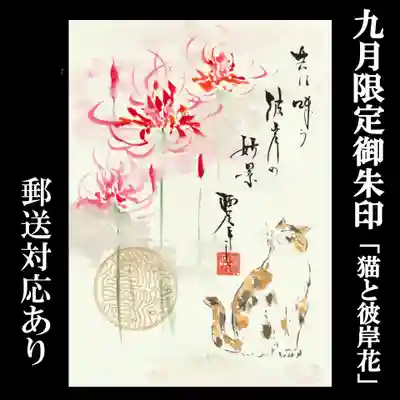 九月限定御朱印「猫と彼岸花」
共に咲う
彼岸の
妙景
郵送対応あり